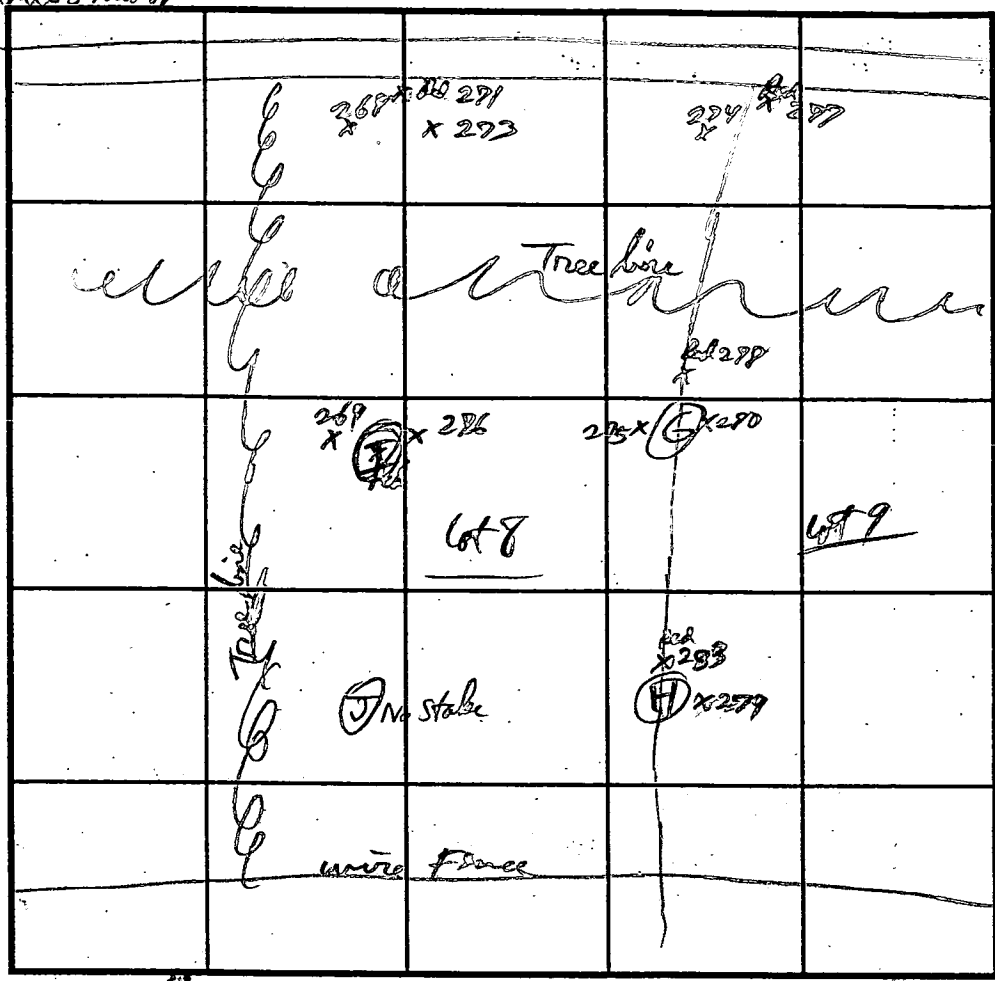 268 x 271
x x 273
274 x
x 277
Tree line
298
x
269
x x 276
275 x G x 280
Lot 8
Lot 9
Tree line
x 283
J No Stake
H x 279
wire Fence